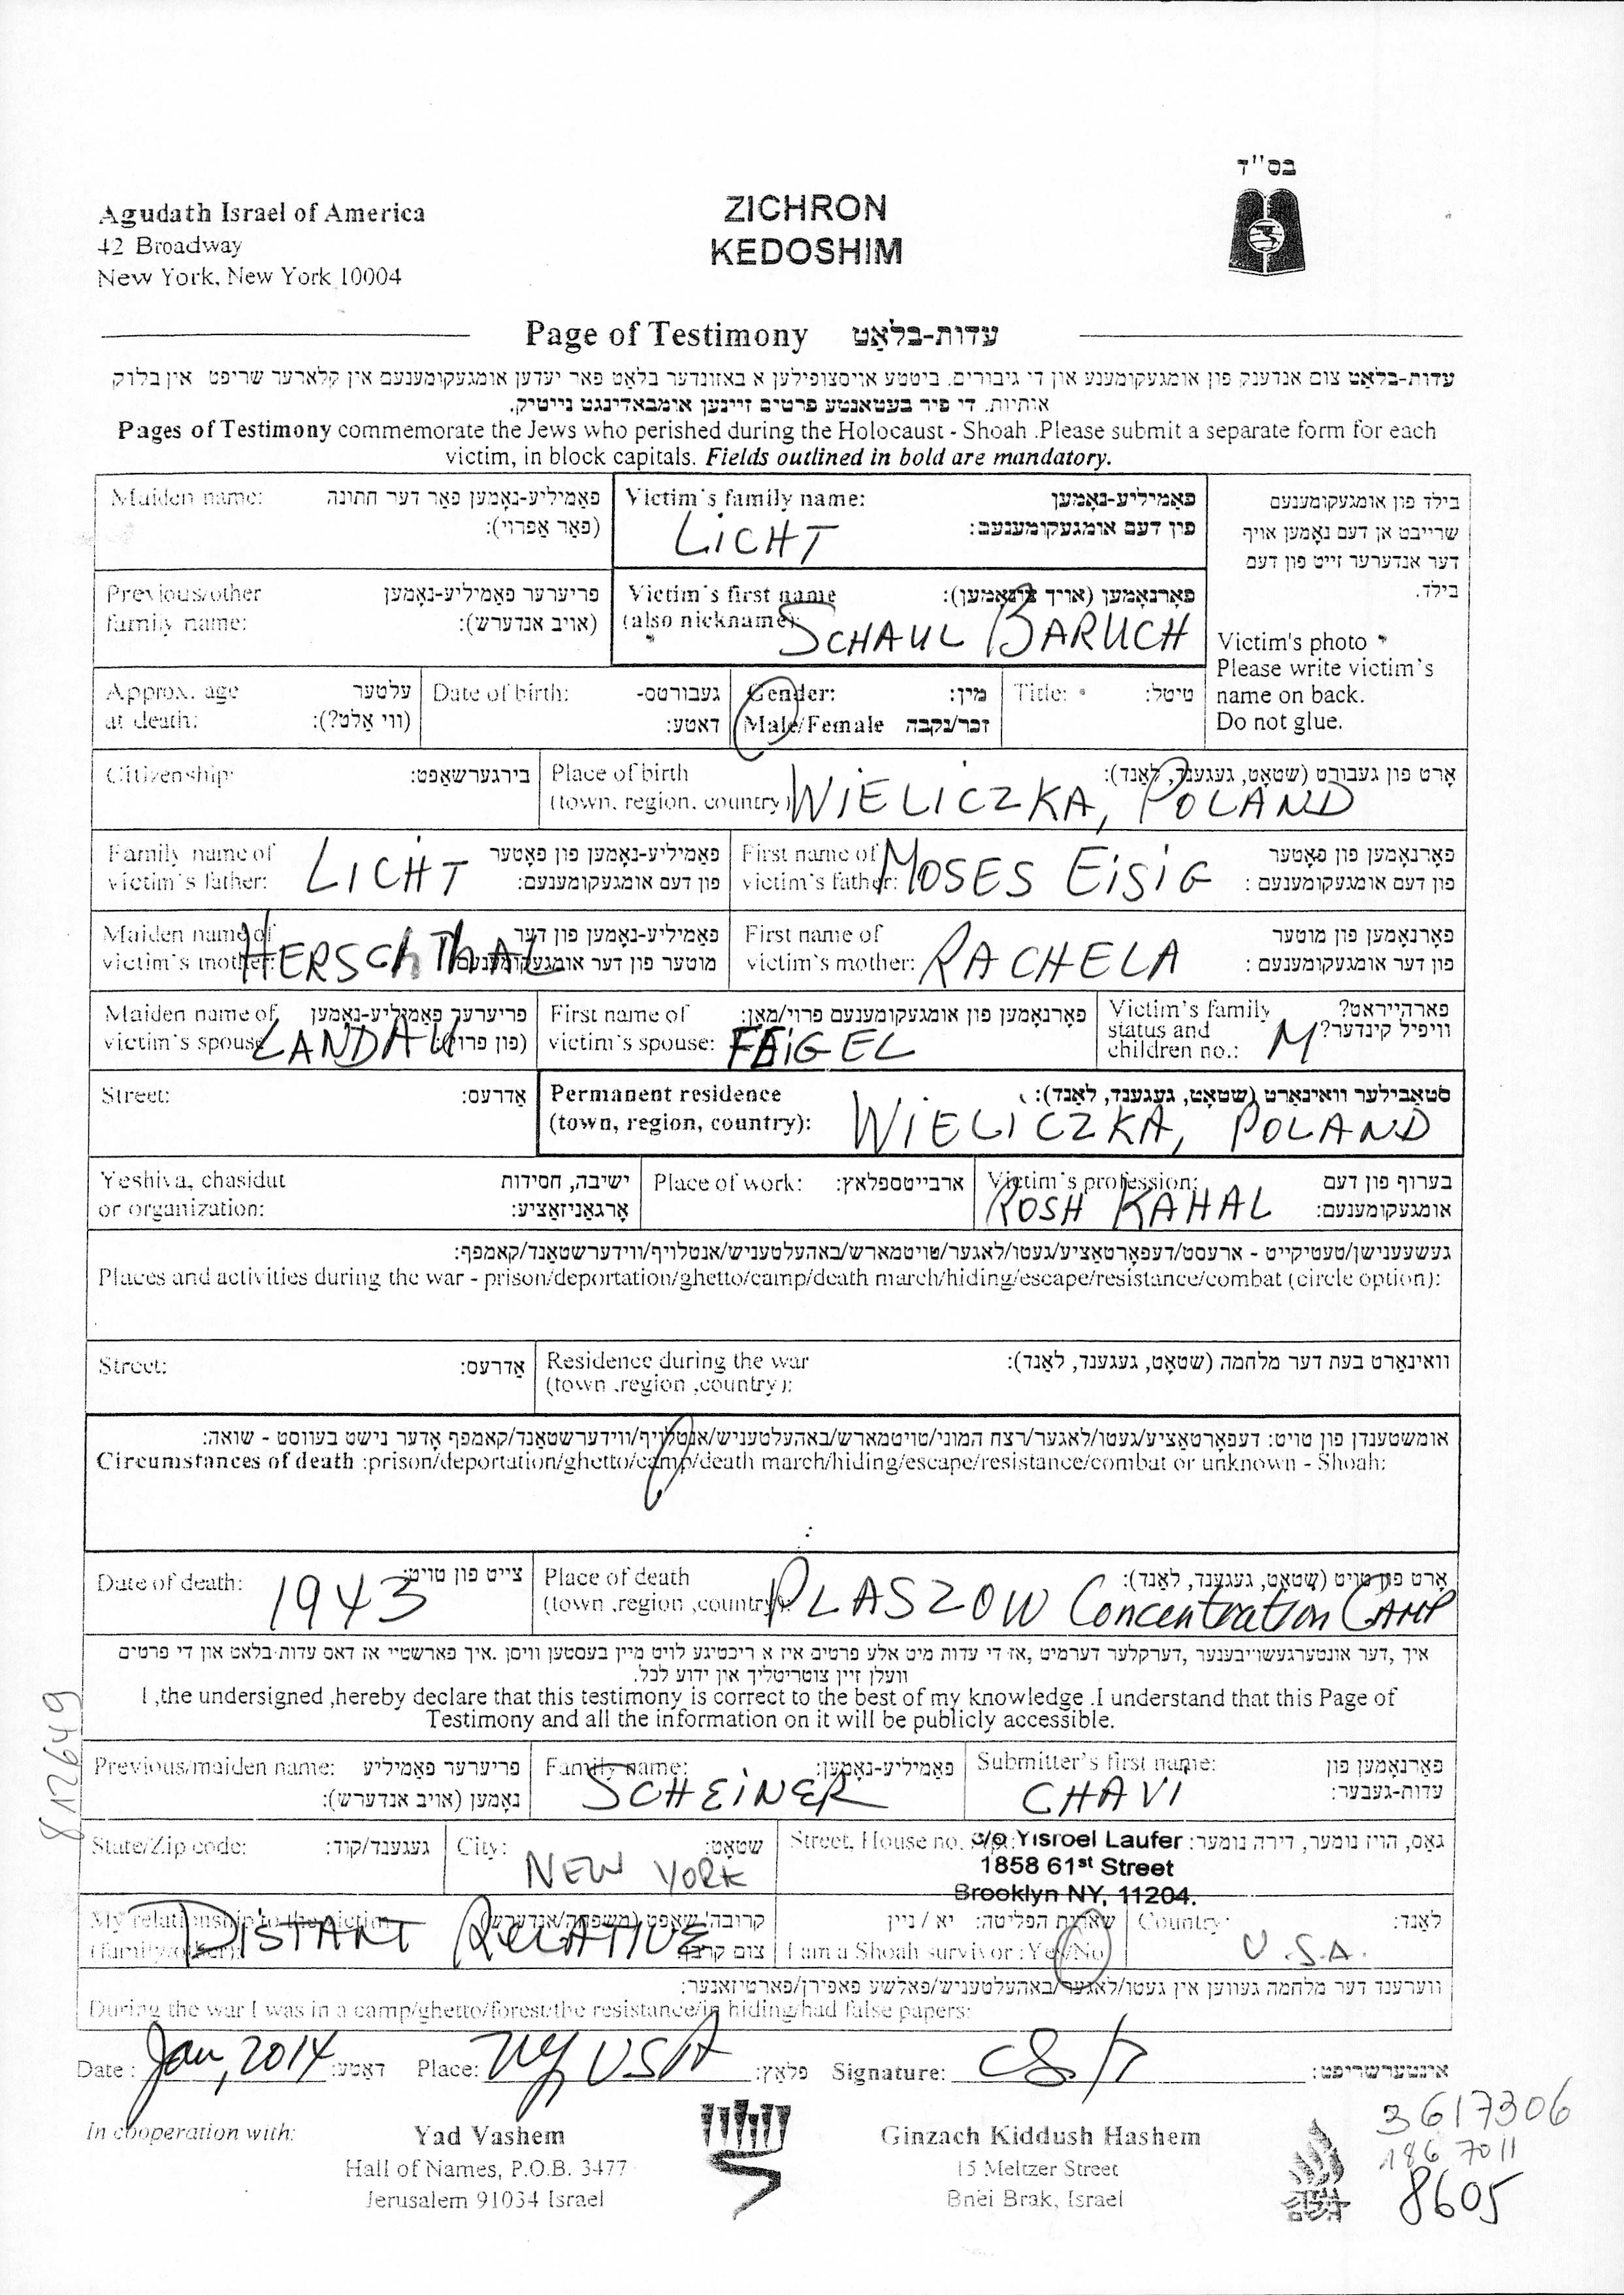 בס"ד
Agudath Israel of America
42 Broadway
New York, New York 10004
ZICHRON
KEDOSHIM
Page of Testimony עדות-בלאַט
עדות-בלאַט צום אנדענק פון אומגעקומענע און די גיבורים. ביטטע אויסצופילען א באזונדער בלאט פאר יעדען אומגעקומענעם אין קלארער שריפט אין בלוק
אותיות. די פיר בעטאנטע פרטים זיינען אומבאדינגט נייטיק.
Pages of Testimony commemorate the Jews who perished during the Holocaust - Shoah .Please submit a separate form for each
victim, in block capitals. Fields outlined in bold are mandatory.
Maiden name: פאַמיליע-נאָמען פאַר דער חתונה
(פאַר אַפרוי):
Victim's family name: פאַמיליע-נאָמען
פון דעם אומגעקומענעם:
LICHT
בילד פון אומגעקומענעם
שרייבט אן דעם נאָמען אויף
דער אנדערער זייט פון דעם
בילד.
Victim's photo
Please write victim's
name on back.
Do not glue.
Previous/other פריערער פאַמיליע-נאָמען
family name: (אויב אנדערש):
Victim's first name
(also nickname):
SCHAUL BARUCH
Approx. age עלטער
at death: (ווי אַלט?):
Date of birth: געבורטס-
דאטע:
Gender: מין:
Male/Female זכר/נקבה
Title: טיטל:
Citizenship: בירגערשאַפט:
Place of birth אָרט פון געבורט (שטאָט, געגענד, לאַנד):
(town, region, country)
WIELICZKA, POLAND
Family name of פאַמיליע-נאָמען פון פאָטער
victim's father: פון דעם אומגעקומענעם:
LICHT
First name of פאָרנאָמען פון פאָטער
victim's father: פון דעם אומגעקומענעם :
MOSES EISIG
Maiden name of פאַמיליע-נאָמען פון דער
victim's mother: מוטער פון דער אומגעקומענעם
HERSCHTHAL
First name of פאָרנאָמען פון מוטער
victim's mother: פון דער אומגעקומענעם :
RACHELA
Maiden name of פריערער פאַמיליע-נאָמען
victim's spouse (פון פרוי):
LANDAU
First name of פאָרנאָמען פון אומגעקומענעם פרוי/מאַן:
victim's spouse: FEIGEL
Victim's family פארהייראט?
status and וויפיל קינדער?
children no.: M
Street: אַדרעס:
Permanent residence סטאַבילער וואוינאָרט (שטאָט, געגענד, לאַנד):
(town, region, country):
WIELICZKA, POLAND
Yeshiva, chasidut ישיבה, חסידות
or organization: אָרגאַניזאַציע:
Place of work: ארבייטספלאץ:
Victim's profession: בערוף פון דעם
אומגעקומענעם:
ROSH KAHAL
געשעענישן/טעטיקייט - ארעסט/דעפאָרטאַציע/געטו/לאגער/טויטמארש/באהעלטעניש/אנטלויף/ווידערשטאַנד/קאמפף:
Places and activities during the war - prison/deportation/ghetto/camp/death march/hiding/escape/resistance/combat (circle option):
Street: אַדרעס:
Residence during the war וואוינאָרט בעת דער מלחמה (שטאָט, געגענד, לאַנד):
(town ,region ,country):
אומשטענדן פון טויט: דעפאָרטאַציע/געטו/לאגער/רצח המוני/טויטמארש/באהעלטעניש/אנטלויף/ווידערשטאַנד/קאמפף אָדער נישט בעווסט - שואה:
Circumstances of death :prison/deportation/ghetto/camp/death march/hiding/escape/resistance/combat or unknown - Shoah:
Date of death: צייט פון טויט:
1943
Place of death אָרט פון טויט (שטאָט, געגענד, לאַנד):
(town ,region ,country):
PLASZOW Concentration CAMP
איך ,דער אונטערגעשריבענער ,דערקלער דערמיט ,אז די עדות מיט אלע פרטים איז א ריכטיגע לויט מיין בעסטען וויסן .איך פארשטיי אז דאס עדות-בלאט און די פרטים
וועלן זיין צוטריטליך און ידוע לכל.
I ,the undersigned ,hereby declare that this testimony is correct to the best of my knowledge .I understand that this Page of
Testimony and all the information on it will be publicly accessible.
812649
Previous/maiden name: פריערער פאַמיליע
נאָמען (אויב אנדערש):
Family name: פאַמיליע-נאָמען:
SCHEINER
Submitter's first name: פאַרנאָמען פון
עדות-געבער:
CHAVI
State/Zip code: געגענד/קוד:
City: שטאָט:
NEW YORK
Street, House no. גאַס, הויז נומער, דירה נומער:
c/o Yisroel Laufer
1858 61st Street
Brooklyn NY, 11204.
My relationship to the victim
(family/other):
DISTANT RELATIVE
שארית הפליטה: יא / ניין
I am a Shoah survivor :Yes/No
Country: לאַנד:
U.S.A.
ווערענד דער מלחמה געווען אין געטו/לאגער/באהעלטעניש/פאלשע פאפירן/פארטיזאנער:
During the war I was in a camp/ghetto/forest/the resistance/in hiding/had false papers:
Date : Jan, 2014 דאַטע: Place: NY, USA פלאַץ: Signature: אונטערשריפט:
In cooperation with:
Yad Vashem
Hall of Names, P.O.B. 3477
Jerusalem 91034 Israel
Ginzach Kiddush Hashem
15 Meltzer Street
Bnei Brak, Israel
3617306
186 7011
8605